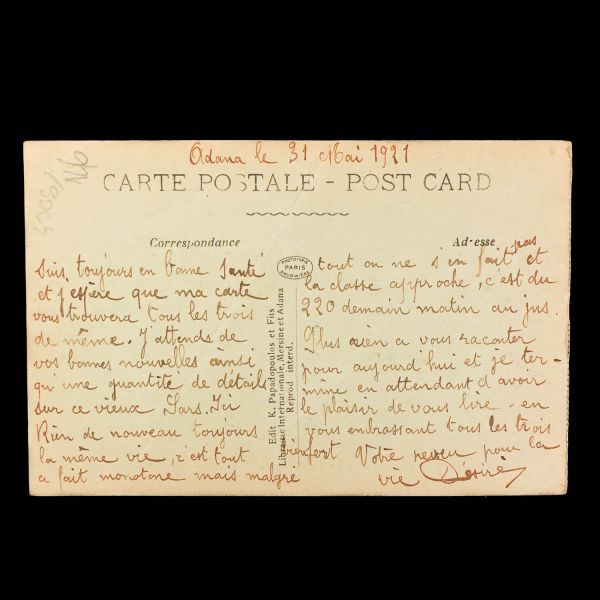 Adana le 31 Mai 1921
CARTE POSTALE - POST CARD
Correspondance
Suis toujours en bonne santé
et j'espère que ma carte
vous trouvera tous les trois
de même. J'attends de
vos bonnes nouvelles ainsi
qu'une quantité de détails
sur ce vieux Ici
Rien de nouveau toujours
la même vie, c'est tout
a fait monotone mais malgré
PHOTOTYPIE
PARIS
BAUDINIÈRE
Edit K. Papadopoulos et Fils
Librairie Internationale, Mersine et Adana
Reprod interd.
Adresse
tout on ne s'en fait pas et
la classe approche, c'est du
220 demain matin au jus.
Plus rien a vous raconter
pour aujourd'hui et je ter-
mine en attendant d'avoir
le plaisir de vous lire - en
vous embrassant tous les trois
bien fort Votre neveu pour la
vie Désiré